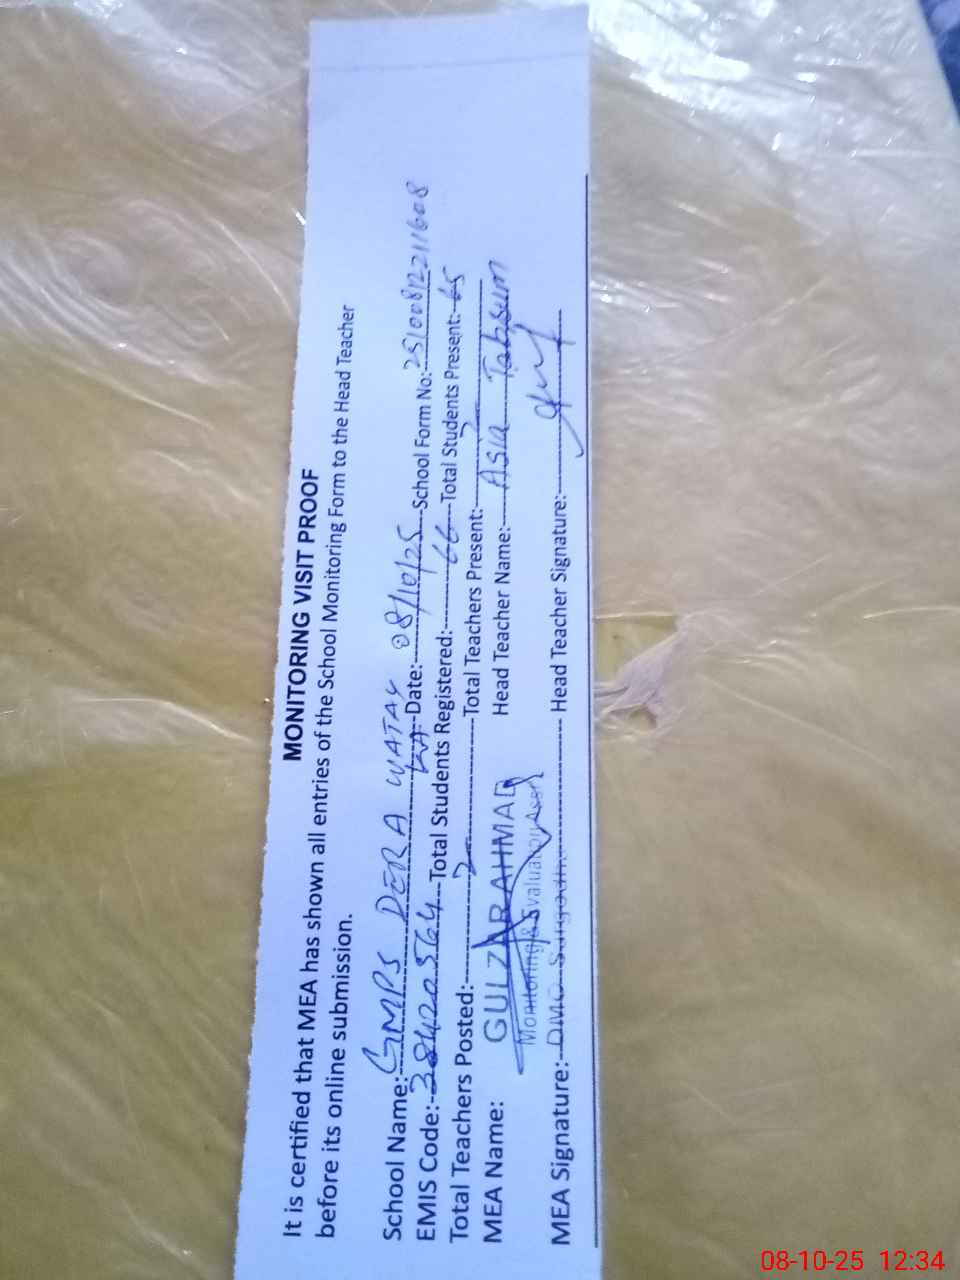 MONITORING VISIT PROOF
It is certified that MEA has shown all entries of the School Monitoring Form to the Head Teacher
before its online submission.
School Name: GMPS DERA WATAY Date: 08/10/25 School Form No: 25100812211608
EMIS Code: 38420564 Total Students Registered: 66 Total Students Present: 65
Total Teachers Posted: 2 Total Teachers Present: 2
MEA Name: GULZAR AHMAD Head Teacher Name: Asia Tabsum
Monitoring & Evaluation Asstt
MEA Signature: DMO Sargodha Head Teacher Signature:
08-10-25 12:34